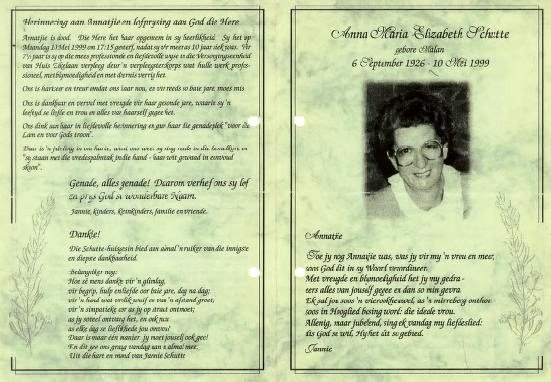 Herinnering aan Annatjie en lofprysing aan God die Here
Annatjie is dood. Die Here het haar opgeneem in sy heerlikheid. Sy het op
Maandag 10 Mei 1999 om 17:15 gesterf, nadat sy vir meer as 10 jaar siek was. Vir
7½ jaar is sy op die mees professionele en liefdevolle wyse in die Versorgingseenheid
van Huis verpleeg deur 'n verpleegsterkorps wat hulle werk profes-
sioneel, met bymoedigheid en met deernis verrig het.
Ons is hartseer en treur omdat ons haar nou, en vir reeds so baie jare, moes mis
Ons is dankbaar en vervul met vreugde vir haar gesonde jare, waarin sy 'n
leeftyd se liefde en trou en alles van haarself gegee het.
Ons dink aan haar in liefdevolle herinnering en gun haar die genadeplek "voor die
Lam en voor Gods troon".
Daar is 'n in ons harte, want ons weet sy sing reeds in die hemelkoor en
"sy staan met die vredespalmtak in die hand - haar wit gewaad in eenvoud
skoon".
Genade, alles genade! Daarom verhef ons sy lof
en prys God se wonderbare Naam.
Jannie, kinders, kleinkinders, familie en vriende.
Dankie!
Die Schutte-huisgesin bied aan almal 'n ruiker van die innigste
en diepste dankbaarheid.
Belangriker nog:
Hoe sê mens dankie vir 'n glimlag,
vir begrip, hulp en liefde oor baie jare, dag na dag;
vir 'n hand wat vrolik wuif as van 'n afstand groet;
vir 'n simpatieke oor as jy op straat ontmoet;
as jy soveel ontvang het, en ook nou
as elke dag se lieflikhede jou omvou?
Daar is maar één manier: jy moet jouself ook gee!
En dit sou ons graag vandag aan u almal
Uit die hart en mond van Jannie Schutte
Anna Maria Elizabeth Schutte
gebore Malan
6 September 1926 - 10 Mei 1999
Annatjie
Toe jy nog Annatjie was, was jy vir my 'n vrou en meer,
soos God dit in sy Woord verordineer.
Met vreugde en blymoedigheid het jy my gedra -
eers alles van jouself gegee en dan so min gevra.
Ek sal jou soos 'n wierookheuwel, as 'n mirreberg onthou
soos in Hooglied besing word: die ideale vrou.
Allenig, maar jubelend, sing ek vandag my liefdeslied:
dis God se wil, Hy het dit so gebied.
Jannie